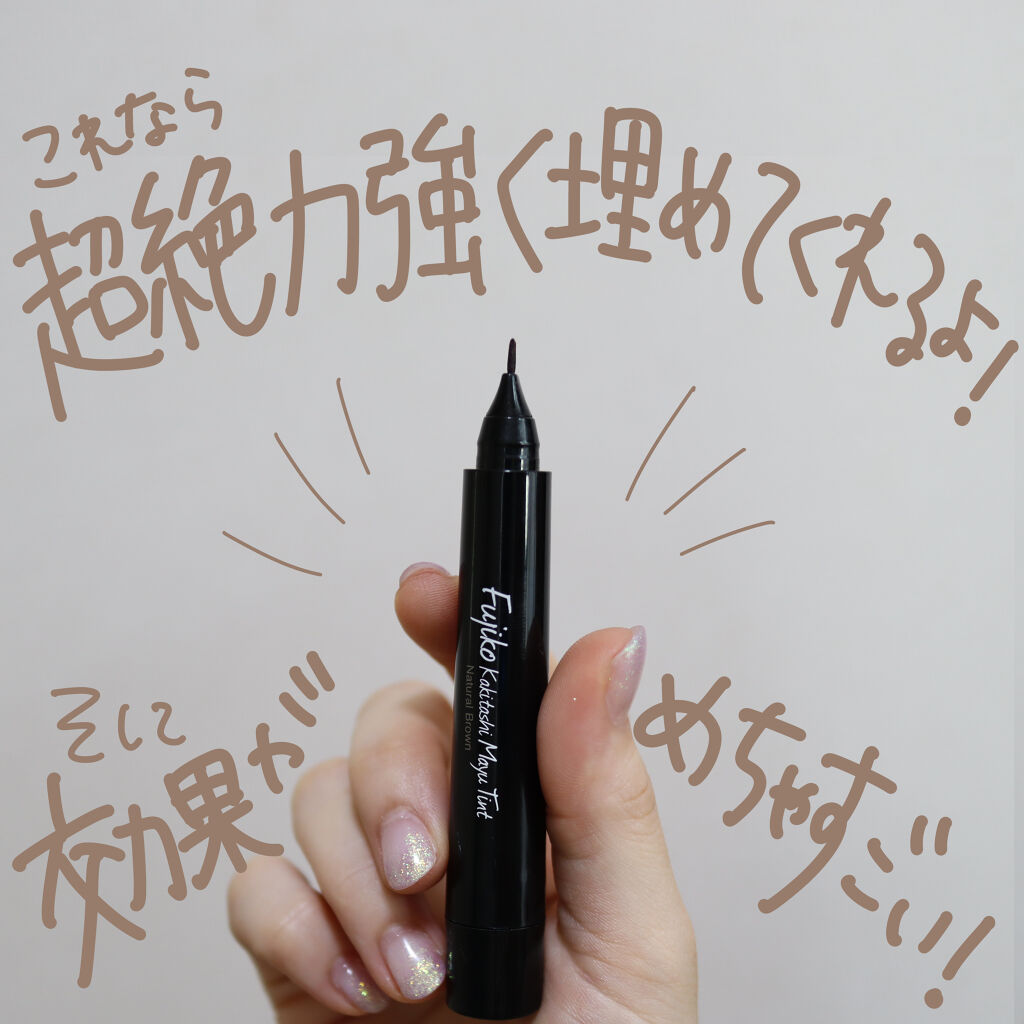 これなら
超絶力強く埋めてくれるよ!
Fujiko Kakitashi Mayu Tint
Natural Brown
そに
効果が
めちゃすごい!